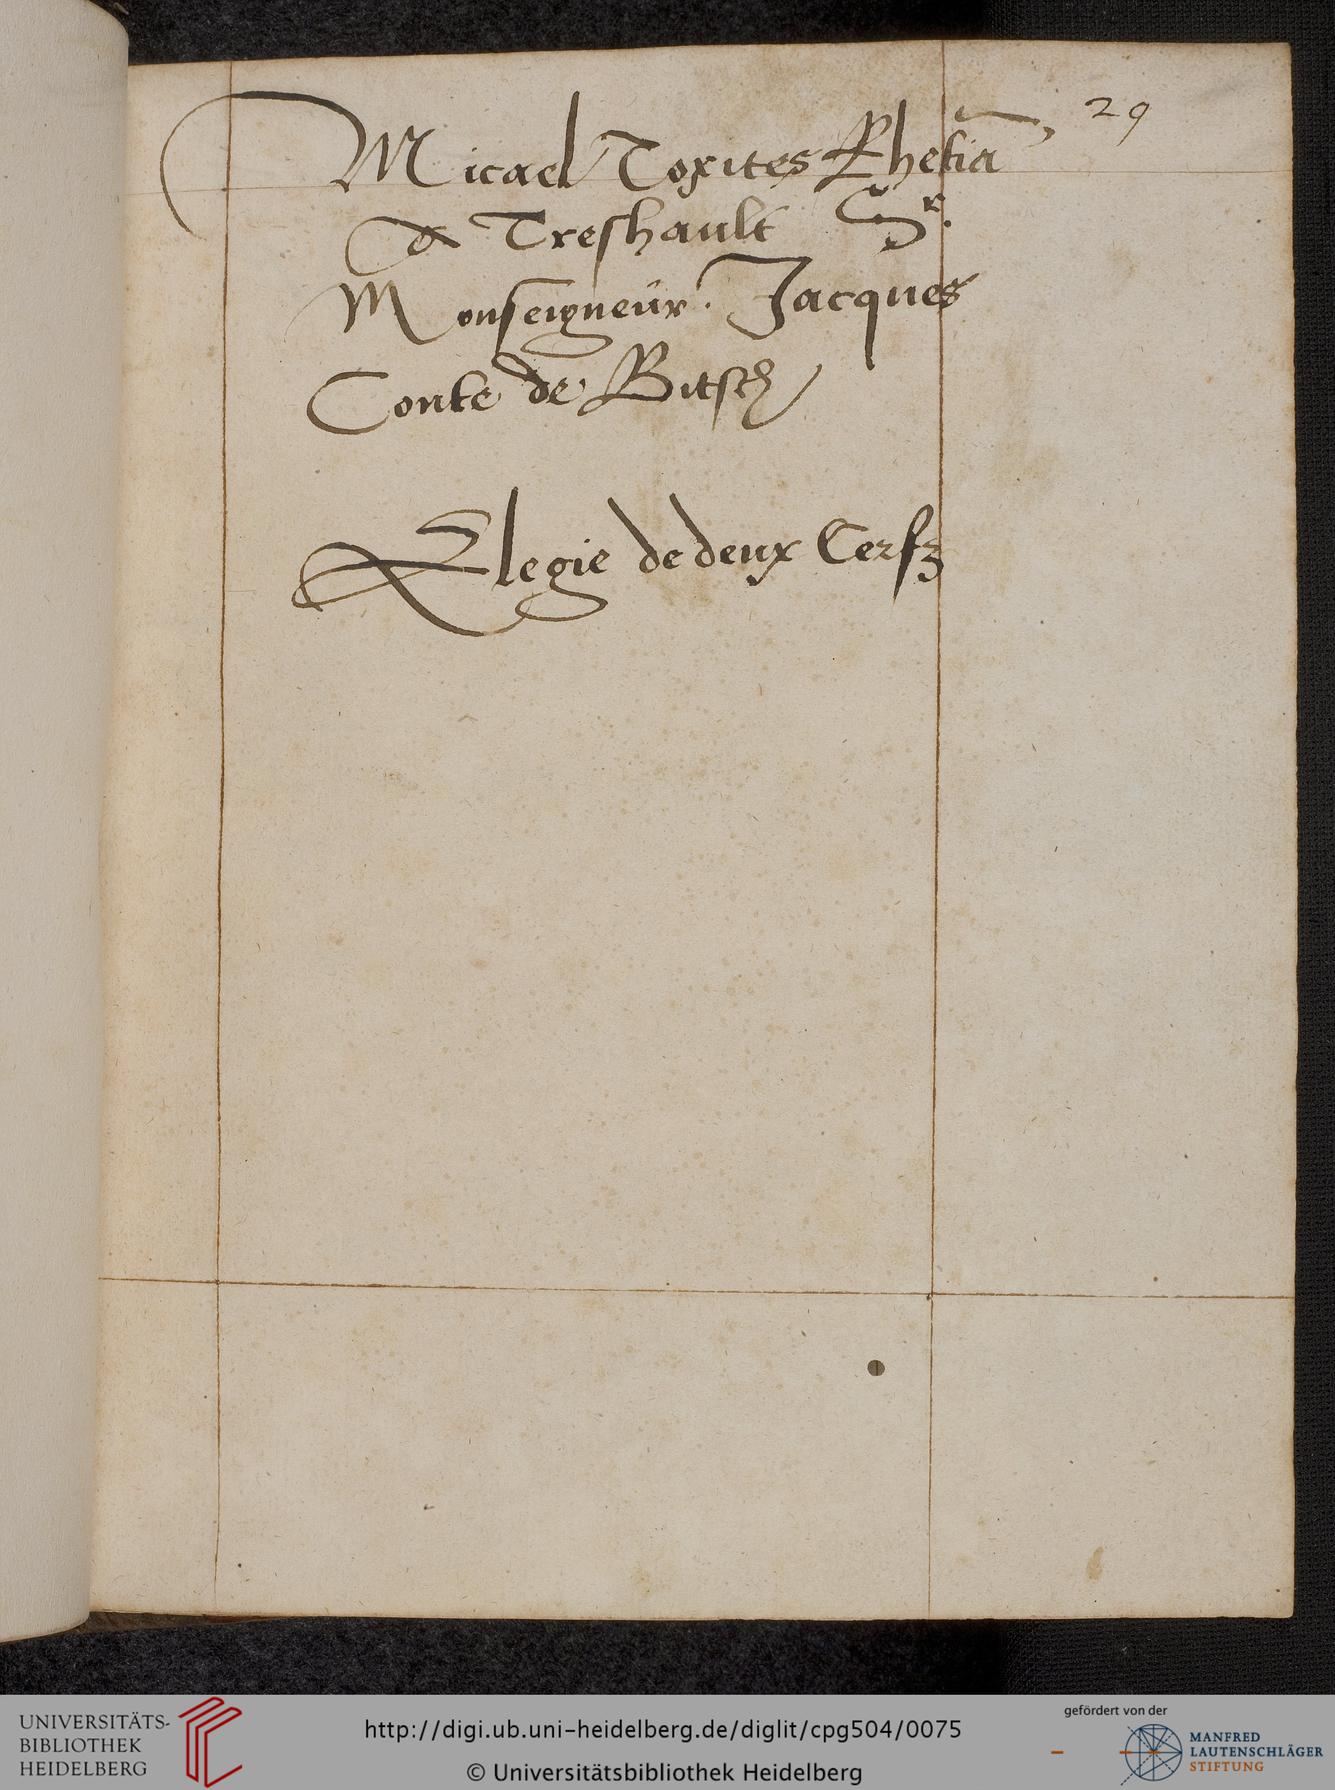 29
Micael Toxites Rhetiã
A Treshault Sr.
Monseigneur. Jacques
Conte de Bitsch
Elegie de deux Cerfz
UNIVERSITÄTS-
BIBLIOTHEK
HEIDELBERG
http://digi.ub.uni-heidelberg.de/diglit/cpg504/0075
© Universitätsbibliothek Heidelberg
gefördert von der
MANFRED
LAUTENSCHLÄGER
STIFTUNG